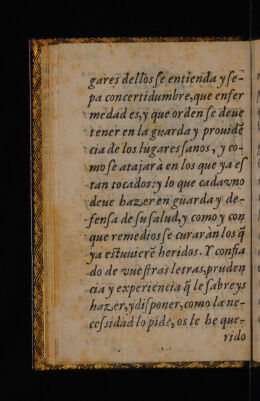 gares dellos ſe entienda y ſe-
pa con certidumbre, que enfer
medad es, y que orden ſe deue
tener en la guarda y prouidẽ
cia de los lugares ſanos, y co-
mo ſe atajarà en los que ya eſ
tan tocados: y lo que cada vno
deue hazer en guarda y de-
fenſa de ſu ſalud, y como y con
que remedios ſe curaràn los q̃
ya eſtuuierẽ heridos. Y confia
do de vueſtras letras, pruden
cia y experiencia q̃ le ſabreys
hazer, y diſponer, como la ne-
ceſsidad lo pide, os le he que-
rido